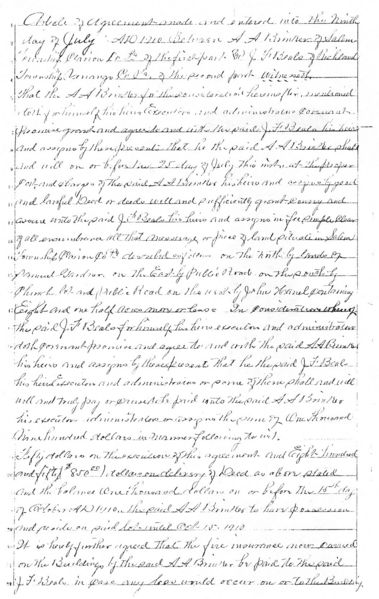 Article of Agreement made and entered into this Ninth
day of July AD 1910 Between A A Brinker of Salem
Township Clarion Co Pa of the first part & J F Beals of Rockland
Township Venango Co Pa of the second part Witnesseth
That the A A Brinker for the consideration hereinafter mentioned
doth for himself his heirs Executors and administrators covenant
promise grant and agree to and with the said J F Beals his heirs
and assigns by these presents that he the said A A Brinker shall
and will on or before the 25 day of July this inst, at the proper
cost and charges of the said A A Brinker his heirs and assigns by good
and Lawful Deed or deeds well and sufficiently grant convey and
assure unto the said J F Beals his heirs and assigns in fee simple clear
of all encumbrance all that messuage or piece of land situate in Salem
Township Clarion Co Pa described as follows on the North by lands of
Samuel Gardner on the East by Public Road on the South by
and Public Road on the west by John containing
Eight and one half Acres more or less In consideration whereof
the said J F Beals for himself his heirs executors and administrators
doth covenant promise and agree to and with the said A A Brinker
his heirs and assigns by these present that he the said J F Beals
his heirs Executors and administrators or some of them shall and will
well and truly pay or cause to be paid unto the said A A Brinker
his executors administrators or assigns the sum of One thousand
Nine hundred dollars in manner following to wit.
Fifty dollars on the execution of this agreement and Eight hundred
and fifty ($850 00) dollars on delivery of Deed as above stated
and the balance One thousand dollars on or before the 15th day
of October AD 1910 the said A A Brinker to have possession
and reside on said until Oct 15. 1910.
It is hereby further agreed that the fire insurance now carried
on the Buildings by the said A A Brinker be paid to the said
J F Beals in case any loss would occur on or to the Building